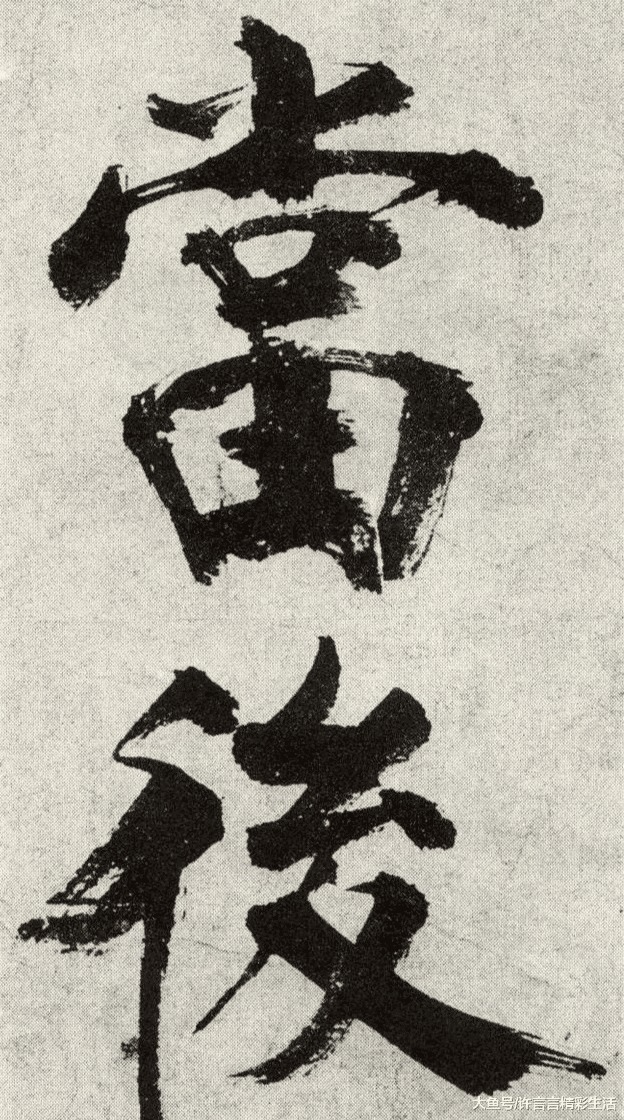 當
後
大鱼号/许言言精彩生活